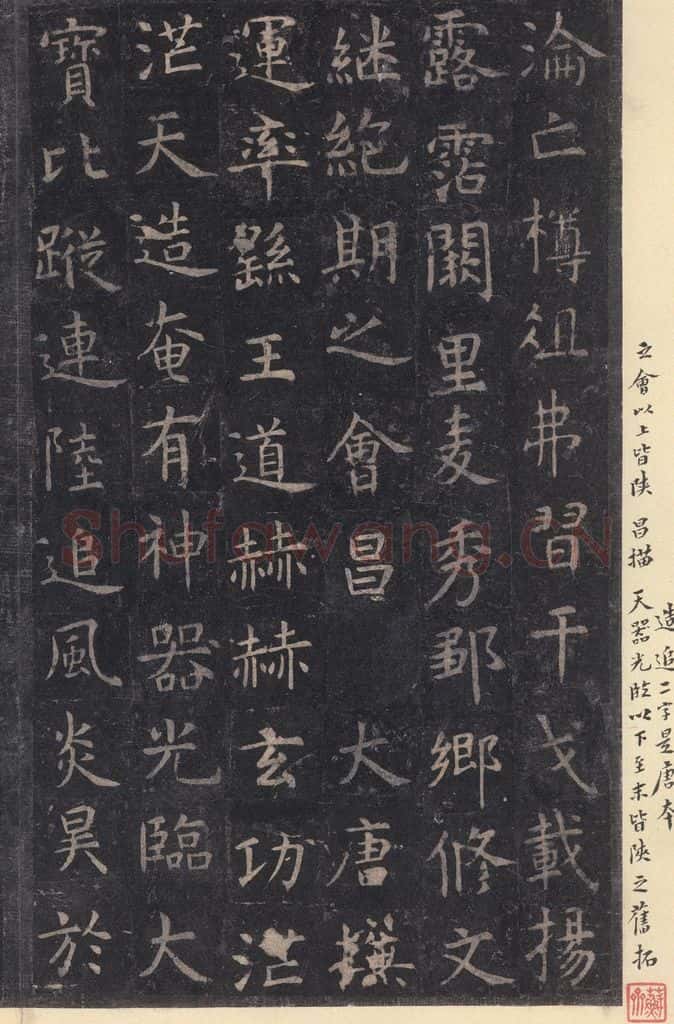 造追二字是唐本
之會以上皆陜 昌描 天器光臨以下至末皆陜之舊拓
淪亡樽俎弗習干戈載揚
露霑闕里麦秀鄒鄉脩文
継絶期之會昌 大唐撰
運率繇王道赫赫玄功茫
茫天造奄有神器光臨大
寶比蹤連陸追風炎昊於
Shufawang.CN